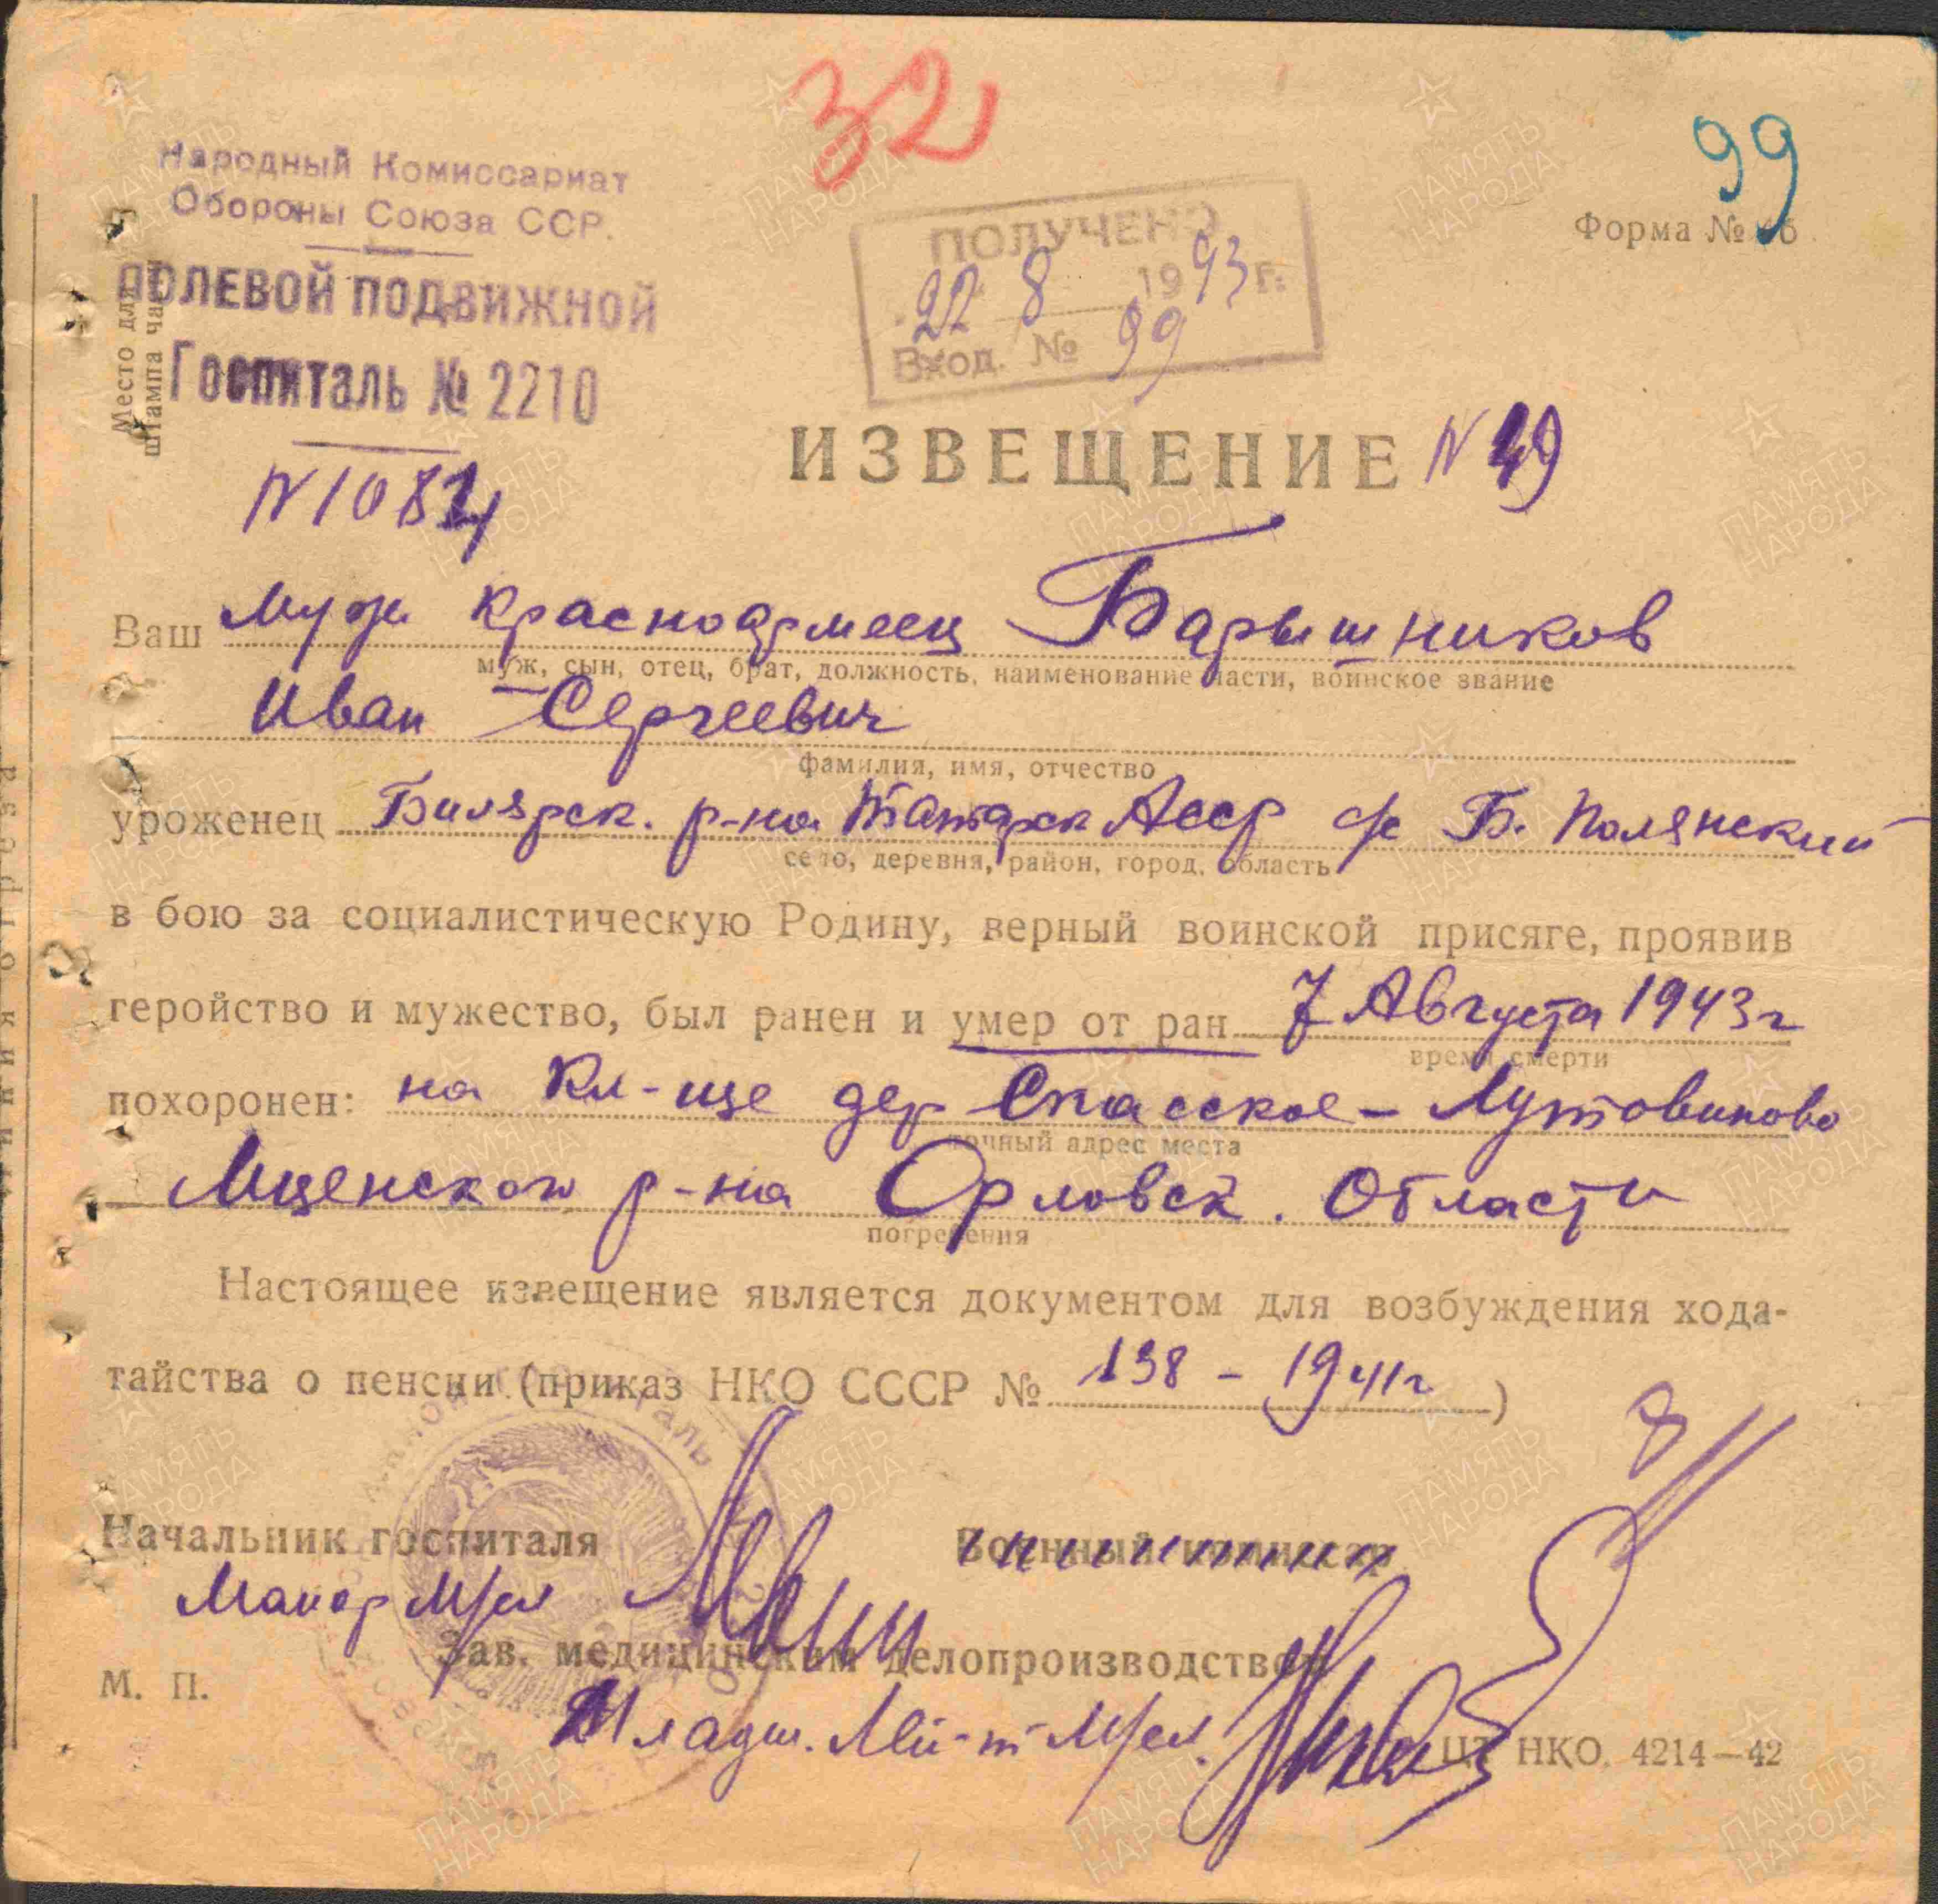 32
99
Форма №
Народный Комиссариат
Обороны Союза ССР.
ПОЛЕВОЙ ПОДВИЖНОЙ
Госпиталь № 2210
Место для
штампа части
ПОЛУЧЕНО
22 8 1943 г.
Вход. № 99
N 1084
ИЗВЕЩЕНИЕ N 49
Ваш муж красноармеец Барышников
муж, сын, отец, брат, должность, наименование части, воинское звание
Иван Сергеевич
фамилия, имя, отчество
уроженец Билярск. р-на Татарск Асср с/с Б. Полянский
село, деревня, район, город, область
в бою за социалистическую Родину, верный воинской присяге, проявив
геройство и мужество, был ранен и умер от ран 7 Августа 1943 г
время смерти
похоронен: на кл-ще дер Спасское - Лутовиново
точный адрес места
Мценского р-на Орловск. Области
погребения
Настоящее извещение является документом для возбуждения хода-
тайства о пенсии (приказ НКО СССР № 138 - 1941 г)
Начальник госпиталя
Военный комиссар
Майор М/сл
Зав. медицинским делопроизводством
М. П.
Младш. Л-й-т М/сл.
НКО. 4214—42
ПАМЯТЬ
НАРОДА